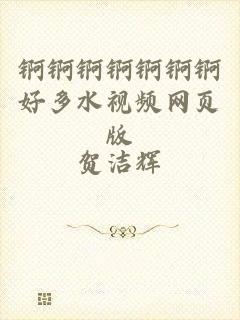 锕锕锕锕锕锕锕
好多水视频网页
版
贺洁辉